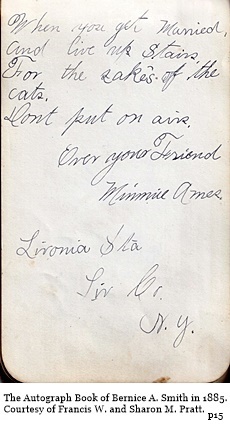 When you get Married,
And live up Stairs
For the sakes of the
cats.
Dont put on airs.
Ever your Friend
Minnie Ames.
Livonia Sta
Liv Co.
N. Y.
The Autograph Book of Bernice A. Smith in 1885.
Courtesy of Francis W. and Sharon M. Pratt.
p15